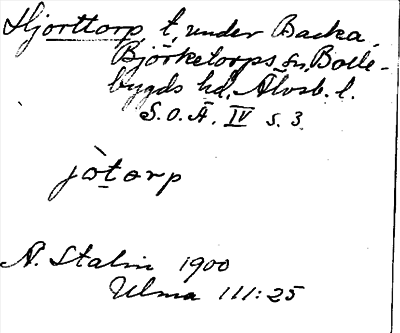 Hjorttorp, t. under Backa
Björketorps sn, Bolle-
bygds hd, Älvsb. l.
S.O.Ä. IV s. 3
jòtorp
A. Stalin 1900
Ulma 111:25